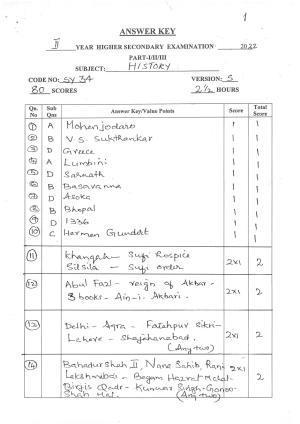 1
ANSWER KEY
II YEAR HIGHER SECONDARY EXAMINATION 2022
PART-I/II/III
SUBJECT: HISTORY
CODE NO: SY 34 VERSION: S
80 SCORES 2½ HOURS
Qn. No Sub Qns Answer Key/Value Points Score Total Score
1 A Mohenjodaro 1 1
2 B V. S. Sukthankar 1 1
3 D Greece 1 1
4 A Lumbini 1 1
5 D Sarnath 1 1
6 B Basavanna 1 1
7 D Asoka 1 1
8 B Bhopal 1 1
9 D 1336 1 1
10 C Herman Gundat 1 1
11 Khanqah - Sufi Hospice
Silsila - Sufi order 2x1 2
12 Abul Fazl - reign of Akbar -
3 books - Ain-i. Akbari. 2x1 2
13 Delhi - Agra - Fatehpur Sikri -
Lahore - Shajahanabad. 2x1 2
(Any two)
14 Bahadurshah II, Nana Sahib, Rani 2x1 2
Lekshmibai - Begam Hazrat Mahal -
Birjis Qadr - Kunwar Singh - Gonoo -
Shah Mal. (Any two)